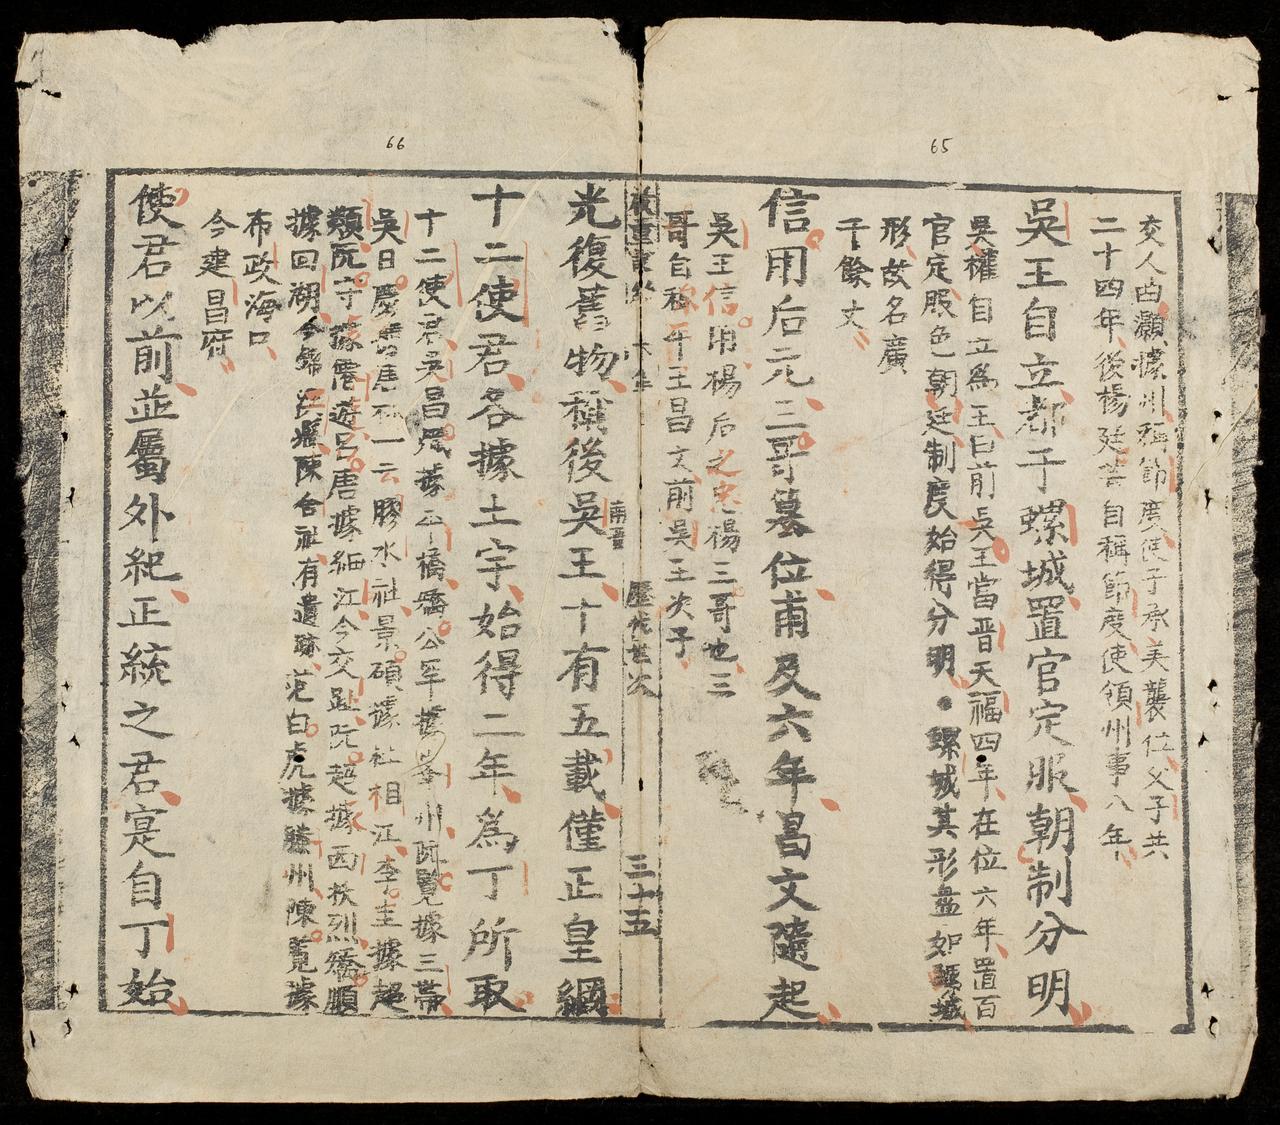 65
交人曲灝據州稱節度使子承美襲位父子共
二十四年後楊廷芸自稱節度使領州事八年
吳王自立都于螺城置官定服朝制分明
吳權自立為王曰前吳王當晋天福四年在位六年置百
官定服色朝廷制度始得分明螺城其形盤如螺城
形故名廣
千餘丈
信用后元三哥篡位甫及六年昌文隨起
吳王信用楊后之兄楊三哥也三
哥自稱平王昌文前吳王次子
歷代世次
三十五
66
光復舊物稱後吳王十有五載僅正皇綱
南晋
十二使君各據土宇始得二年為丁所取
十二使君吳昌熾據平橋矯公罕據峯州阮寬據三帶
吳日慶據唐林一云膠水社景碩據社相江李圭據超
類阮守據僊遊呂唐據細江今交趾阮超據西扶烈矯順
據回湖今錦陳舍社有遺跡范白虎據藤州陳覽據
布政海口
今建昌府
使君以前並屬外紀正統之君寔自丁始